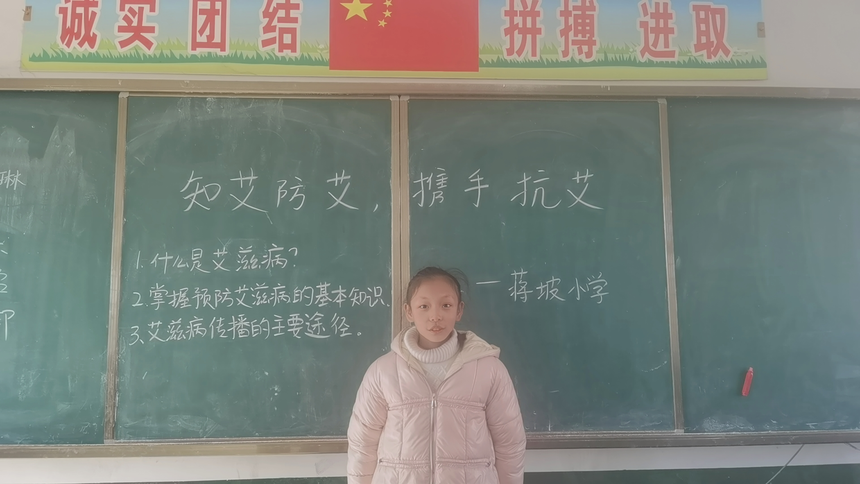 诚实 团结 拼搏 进取
知艾防艾，携手抗艾
1.什么是艾滋病?
2.掌握预防艾滋病的基本知识.
3、艾滋病传播的主要途径。
—蒋坡小学
琳